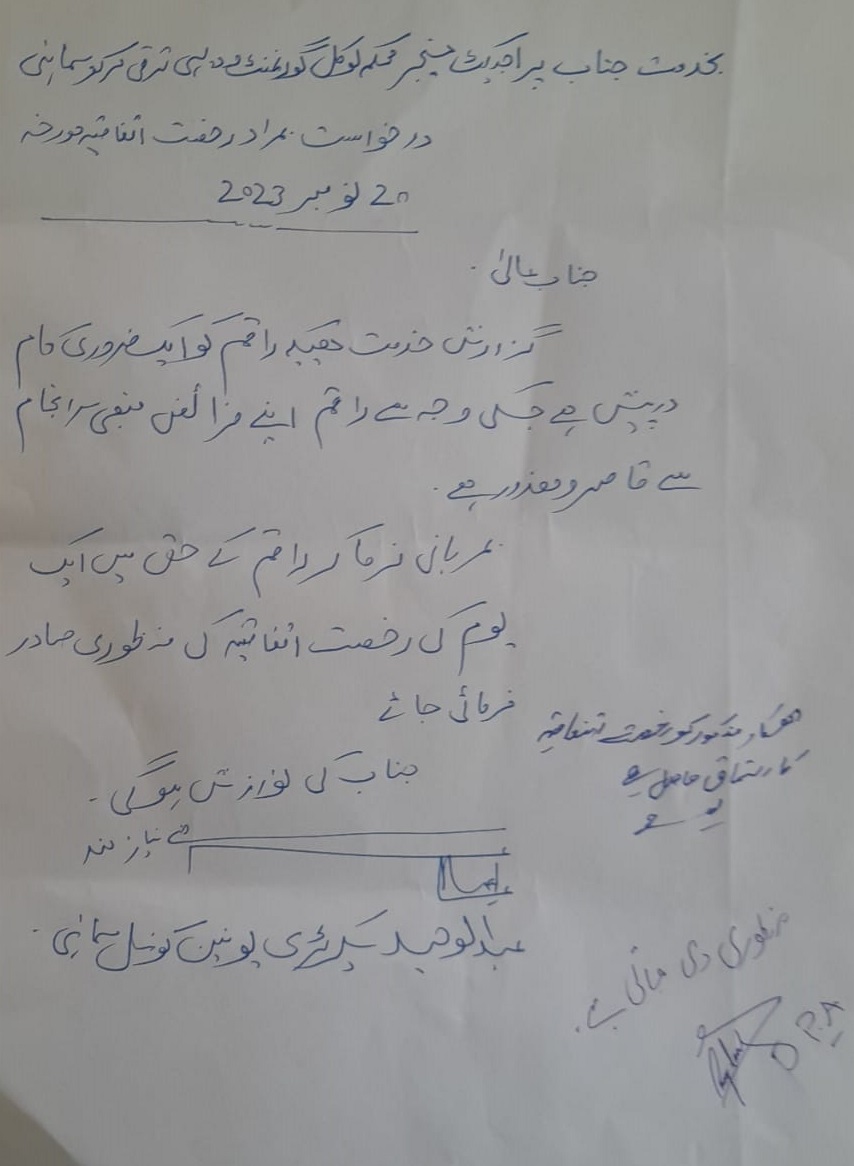 بخدمت جناب پراجیکٹ منیجر محکمہ لوکل گورنمنٹ و دیہی ترقی مرکز سماہنی
درخواست بمراد رخصت اتفاقیہ مورخہ
20 نومبر 2023
جناب عالیٰ۔
گزارش خدمت ہیکہ راقم کو ایک ضروری کام
درپیش ہے جسکی وجہ سے راقم اپنے فرائض منصبی سرانجام
سے قاصر و معذور ہے۔
مہربانی فرما کر راقم کے حق میں ایک
یوم کی رخصت اتفاقیہ کی منظوری صادر
فرمائی جائے
جناب کی نوازش ہوگی۔
نیاز مند
عبدالوحید سیکرٹری یونین کونسل سماہنی۔
اہلکار مذکور کو رخصت اتفاقیہ
کا استحقاق حاصل ہے
منظوری دی جاتی ہے۔
P.A